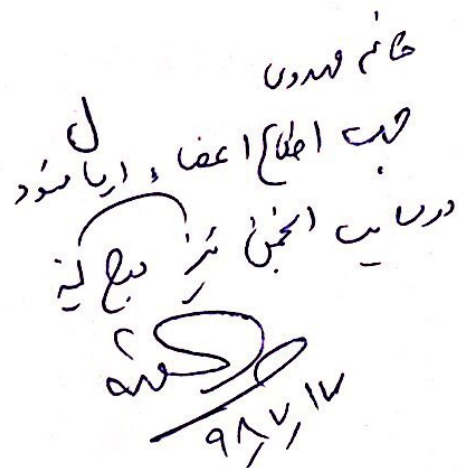 خانم مهدوی
جهت اطلاع اعضاء ارسال شود
در سایت انجمن نیز درج کنید
۹۸٫۷٫۱۷